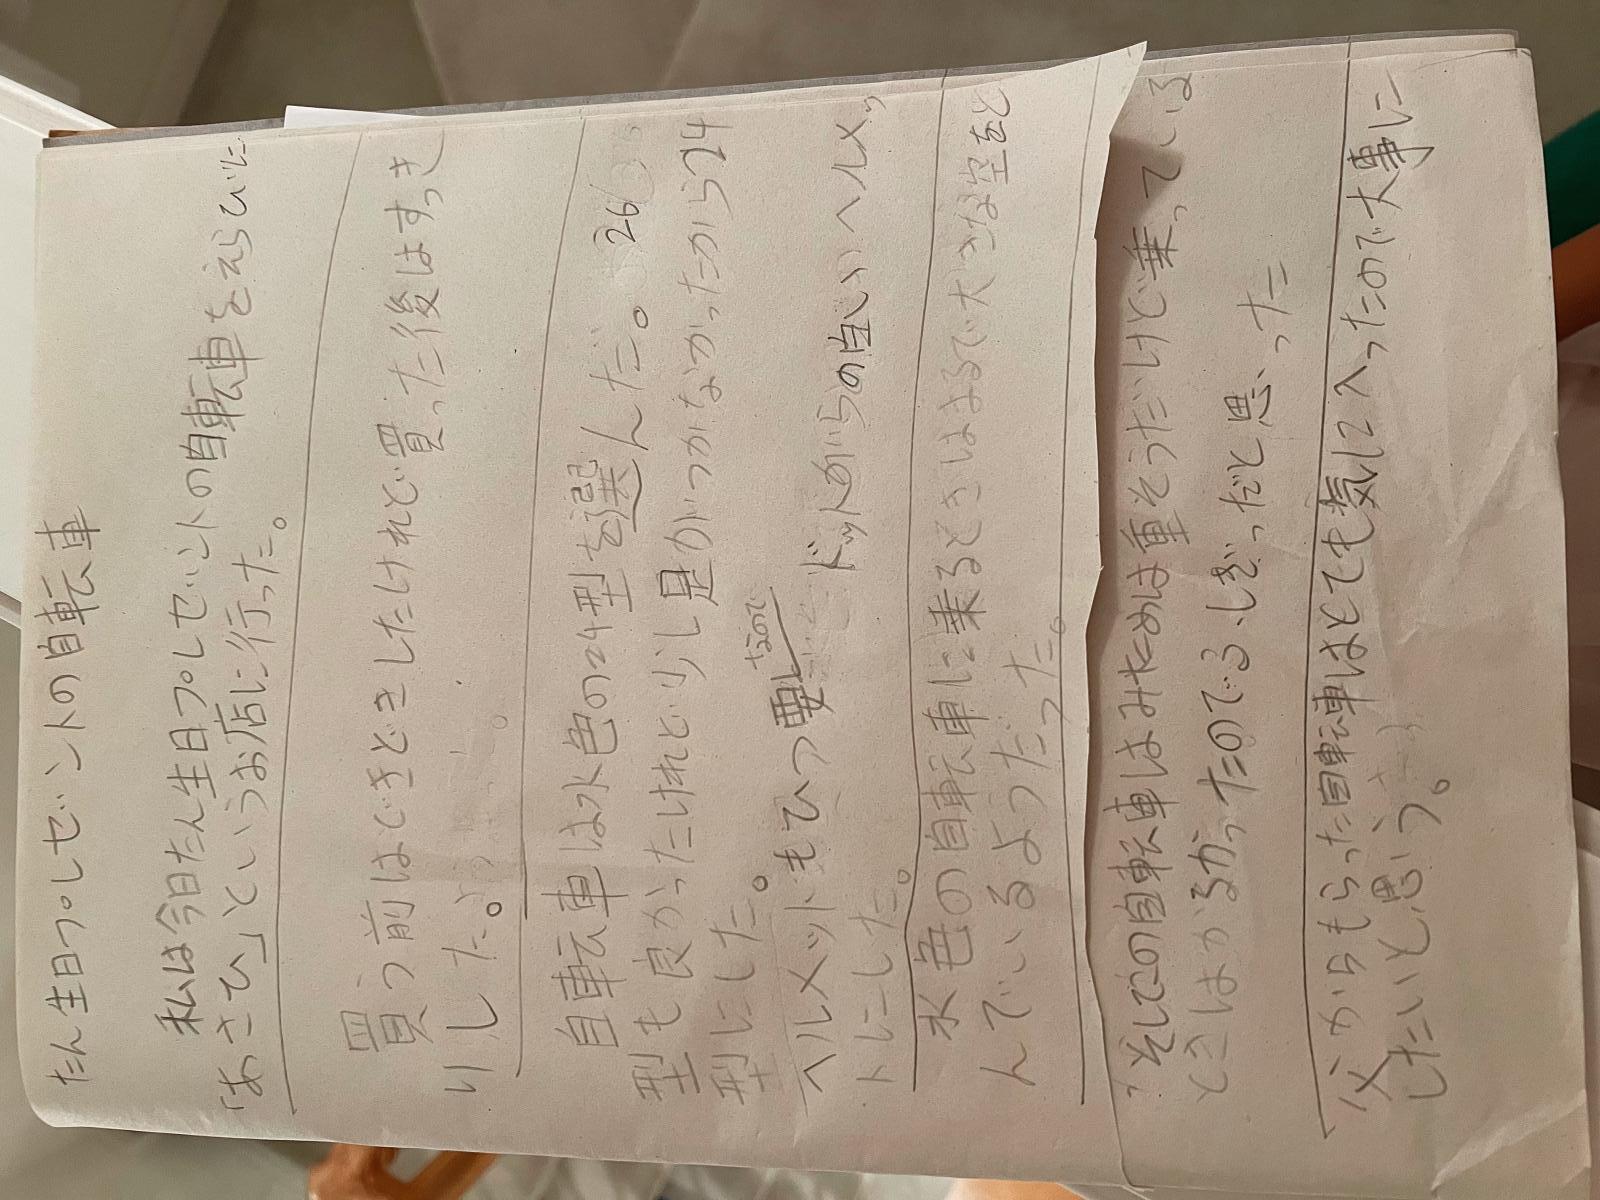 たん生日プレゼントの自転車
私は今日たん生日プレゼントの自転車をえらびに
「あさひ」というお店に行った。
買う前はどきどきしたけれど買った後はすっき
りした。
自転車は水色の24型を選んだ。26
型も良かったけれど少し足がつかなかったから24
型にした。
ヘルメットもひつ要なのでドットがらの白いヘルメッ
トにした。
水色の自転車に乗るときはまるで大きな空をと
んでいるようだった。
そしてこの自転車はみためは重そうだけど乗っている
ときはかるかったのでふしぎだと思った
父からもらった自転車はとても気に入ったので大事に
したいと思う。